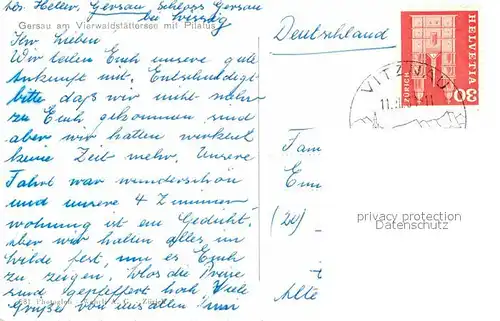 bei Heller, Gersau Schloss Gersau
bei Leissig
Gersau am Vierwaldstättersee mit Pilatus
Ihr Lieben
Wir teilen Euch unsere gute
Ankunft mit. Entschuldigt
bitte daß wir nicht mehr
zu Euch gekommen sind
aber wir hatten wirklich
keine Zeit mehr. Unsere
Fahrt war wunderschön
und unsere 4 Zimmer
wohnung ist ein Gedicht,
aber wir halten alles im
Bilde fest, um es Euch
zu zeigen. Blos die Preise
sind gepfeffert hoch. Viele
Grüße von uns allen
Deutschland
HELVETIA
ZÜRICH
80
VITZNAU
11
Fam
(20)
Alte
privacy protection
Datenschutz